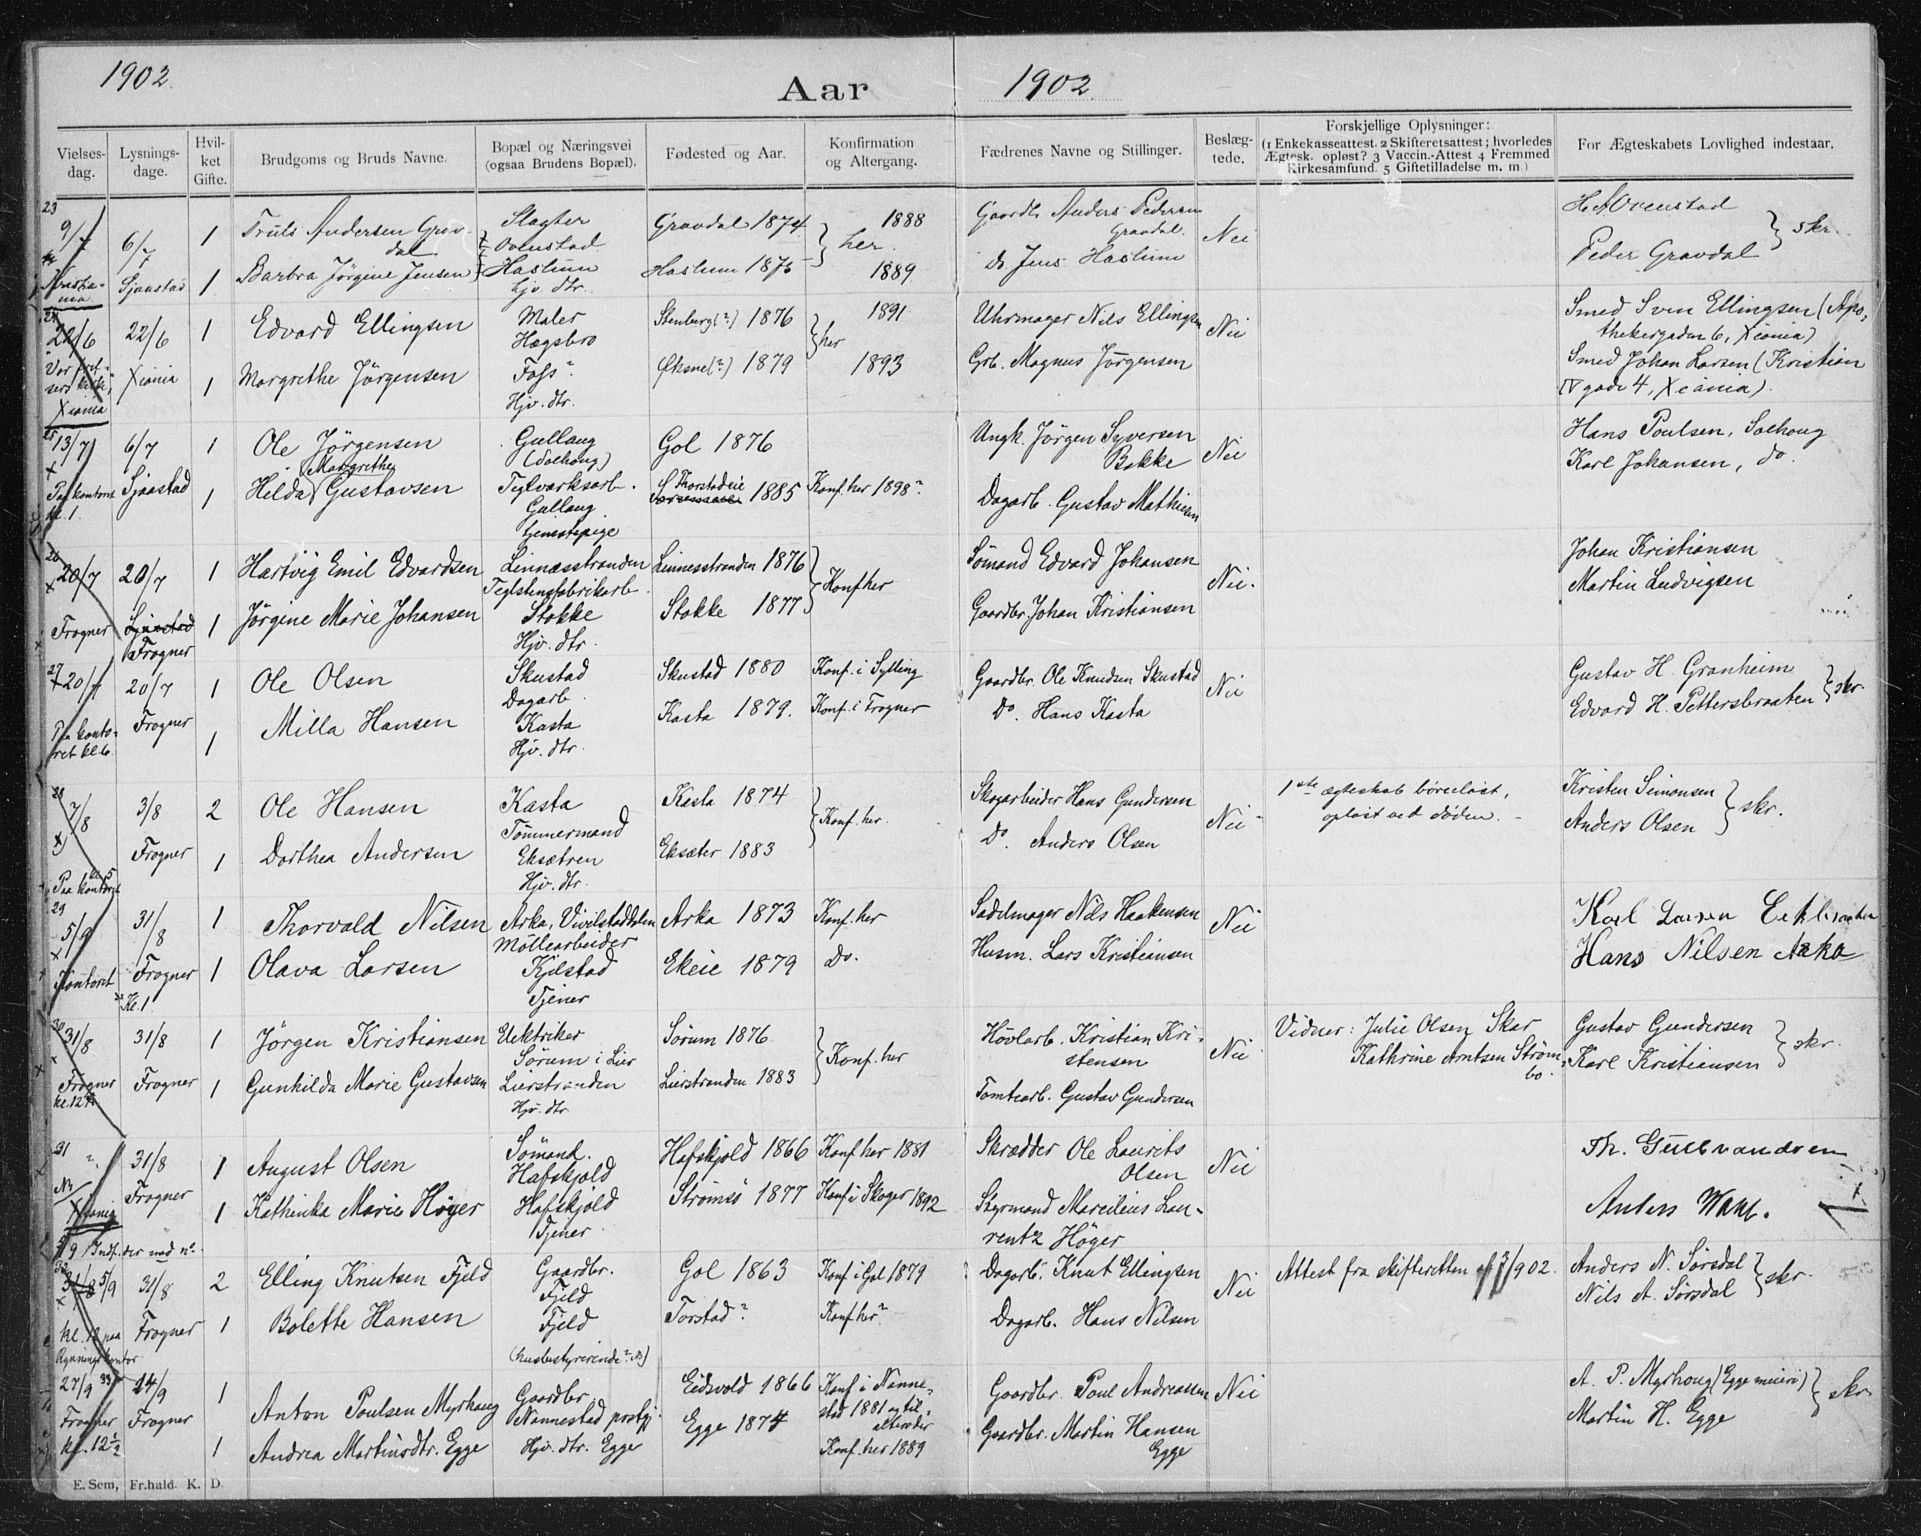 1902. Aar 1902
Vielses-dag. | Lysnings-dage. | Hvilket Gifte. | Brudgoms og Bruds Navne. | Bopæl og Næringsvei (ogsaa Brudens Bopæl). | Fødested og Aar. | Konfirmation og Altergang. | Fædrenes Navne og Stillinger. | Beslægtede. | Forskjellige Oplysninger: (1 Enkekasseattest. 2 Skifteretsattest; hvorledes Ægtesk. opløst? 3 Vaccin.-Attest 4 Fremmed Kirkesamfund. 5 Giftetilladelse m. m.) | For Ægteskabets Lovlighed indestaar.
23
9/7 6/7 1 Truls Andersen Grav- Slagter Gravdal 1874 1888 Gaardb. Anders Pedersen H. A. Ovenstad
dal Ovenstad her. Gravdal. Nei } skr.
Sjaastad 1 Barbra Jörgine Jensen Haslum Haslum 1875 1889 Do. Jens Haslum Peder Gravdal
Hjv. dtr.
24
22/6 22/6 1 Edvard Ellingsen Maler Stenberg(?) 1876 1891 Uhrmager Nils Ellingsen Nei Smed Sven Ellingsen (Apo-
Hægsbro } her thekergaden 6, Xiania)
Vor frel-
sers kirke, Xiania 1 Margrethe Jörgensen Foss? Öksne(?) 1879 1893 Grb. Magnus Jörgensen Smed Johan Larsen (Kristian
Xiania Hjv. dtr. IV gade 4, Xiania).
25
13/7 6/7 1 Ole Jörgensen Gullaug Gol 1876 Ungk. Jörgen Syversen Nei Hans Poulsen, Solhoug
(Solhoug) Bakke Karl Johansen, do.
Margrethe
Paa kontoret Sjaastad 1 Hilda Gustavsen Teglværksarb. S. Thorstadeie 1885 Konf. her 1898? Dagarb. Gustav Mathiesen
kl. 1. Gullaug
tjenestepige
26
20/7 20/7 1 Hartvig Emil Edvardsen Linnæsstranden Linnesstranden 1876 Sömand Edvard Johansen Nei. Johan Kristiansen
Teglstensfabrikarb. } Konf her Martin Ludvigsen
Frogner Sjaastad 1 Jörgine Marie Johansen Stokke Stokke 1877 Gaardbr. Johan Kristiansen
Frogner Hjv. dtr.
27
20/7 20/7 1 Ole Olsen Skustad Skustad 1880 Konf. i Sylling Gaardbr. Ole Knudsen Skustad Nei Gustav H. Granheim
Dagarb. } skr.
Paa konto- Frogner 1 Milla Hansen Kasta Kasta 1879. Konf. i Frogner Do. Hans Kasta Edvard H. Pettersbraaten
ret kl. 6. Hjv. dtr.
28
7/8 3/8 2 Ole Hansen Kasta Kasta 1874 Skogarbeider Hans Gundersen Nei 1ste ægteskab börnelöst, Kristen Simonsen
Tömmermand } Konf. her. oplöst ved döden. } skr.
Frogner 1 Dorthea Andersen Eksætren Eksæter 1883 Do. Anders Olsen Anders Olsen
Paa kontoret Hjv. dtr.
29
5/9 31/8 1 Thorvald Nilsen Arka, Arka 1873 Konf. her Sadelmager Nils Haakensen Nei Karl Larsen
Möllearbeider
Kontoret Frogner 1 Olava Larsen Kjelstad Ekeie 1879 Do. Husm. Lars Kristiansen Hans Nilsen Arka
Kl. 1 Tjener
30
31/8 31/8 1 Jörgen Kristiansen Elektriker Sörum 1876 Hövlarb. Kristian Kri- Nei Vidner: Julie Olsen Skar Gustav Gundersen
Sörum i Lier } Konf. her stensen Kathrine Arntsen Ström- } skr.
bo.
Frogner Frogner 1 Gunhilda Marie Gustavsen Lierstranden Lierstranden 1883 Tomtearb. Gustav Gundersen Karl Kristiansen
kl. 12 1/2 Hjv. dtr.
31
31/8 1 August Olsen Sömand. Hafskjold 1866 Konf. her 1881 Skrædder Ole Laurits Nei Th. Gullvandren
Hafskjold Olsen
Xiania Frogner 1 Kathinka Marie Höyer Hafskjold Strömsö 1877 Konf. i Skoger 1892 Styrmand Marcilius Lau- Anders Wahl.
Tjener rentz Höger
32
31/8 5/9 31/8 2 Elling Knutsen Fjeld Gaardbr. Gol 1863 Konf. i Gol 1879 Dagarb. Knut Ellingsen Nei Attest fra skifteretten af 3/7 902. Anders N. Sörsdal
Fjeld } skr.
kl. 12 paa Frogner 1 Bolette Hansen Fjeld Torstad? Konf. her? Dagarb. Hans Nilsen Nils A. Sörsdal
(husbestyrerinde?)
33
27/9 14/9 1 Anton Poulsen Myrhaug Gaardbr. Eidsvold 1866 Konf. i Nanne- Gaardbr. Poul Andreassen Nei A. P. Myrhoug (Egge meieri)
Nannestad prestgj. stad 1881 og til- } skr.
Frogner Frogner alters der
kl. 12 1/2 1 Andrea Martinsdtr. Egge Hjv. dtr. Egge Egge 1874 Konf. her 1889 Gaardbr. Martin Hansen Martin H. Egge
Egge
E. Sem, Fr.hald. K. D.